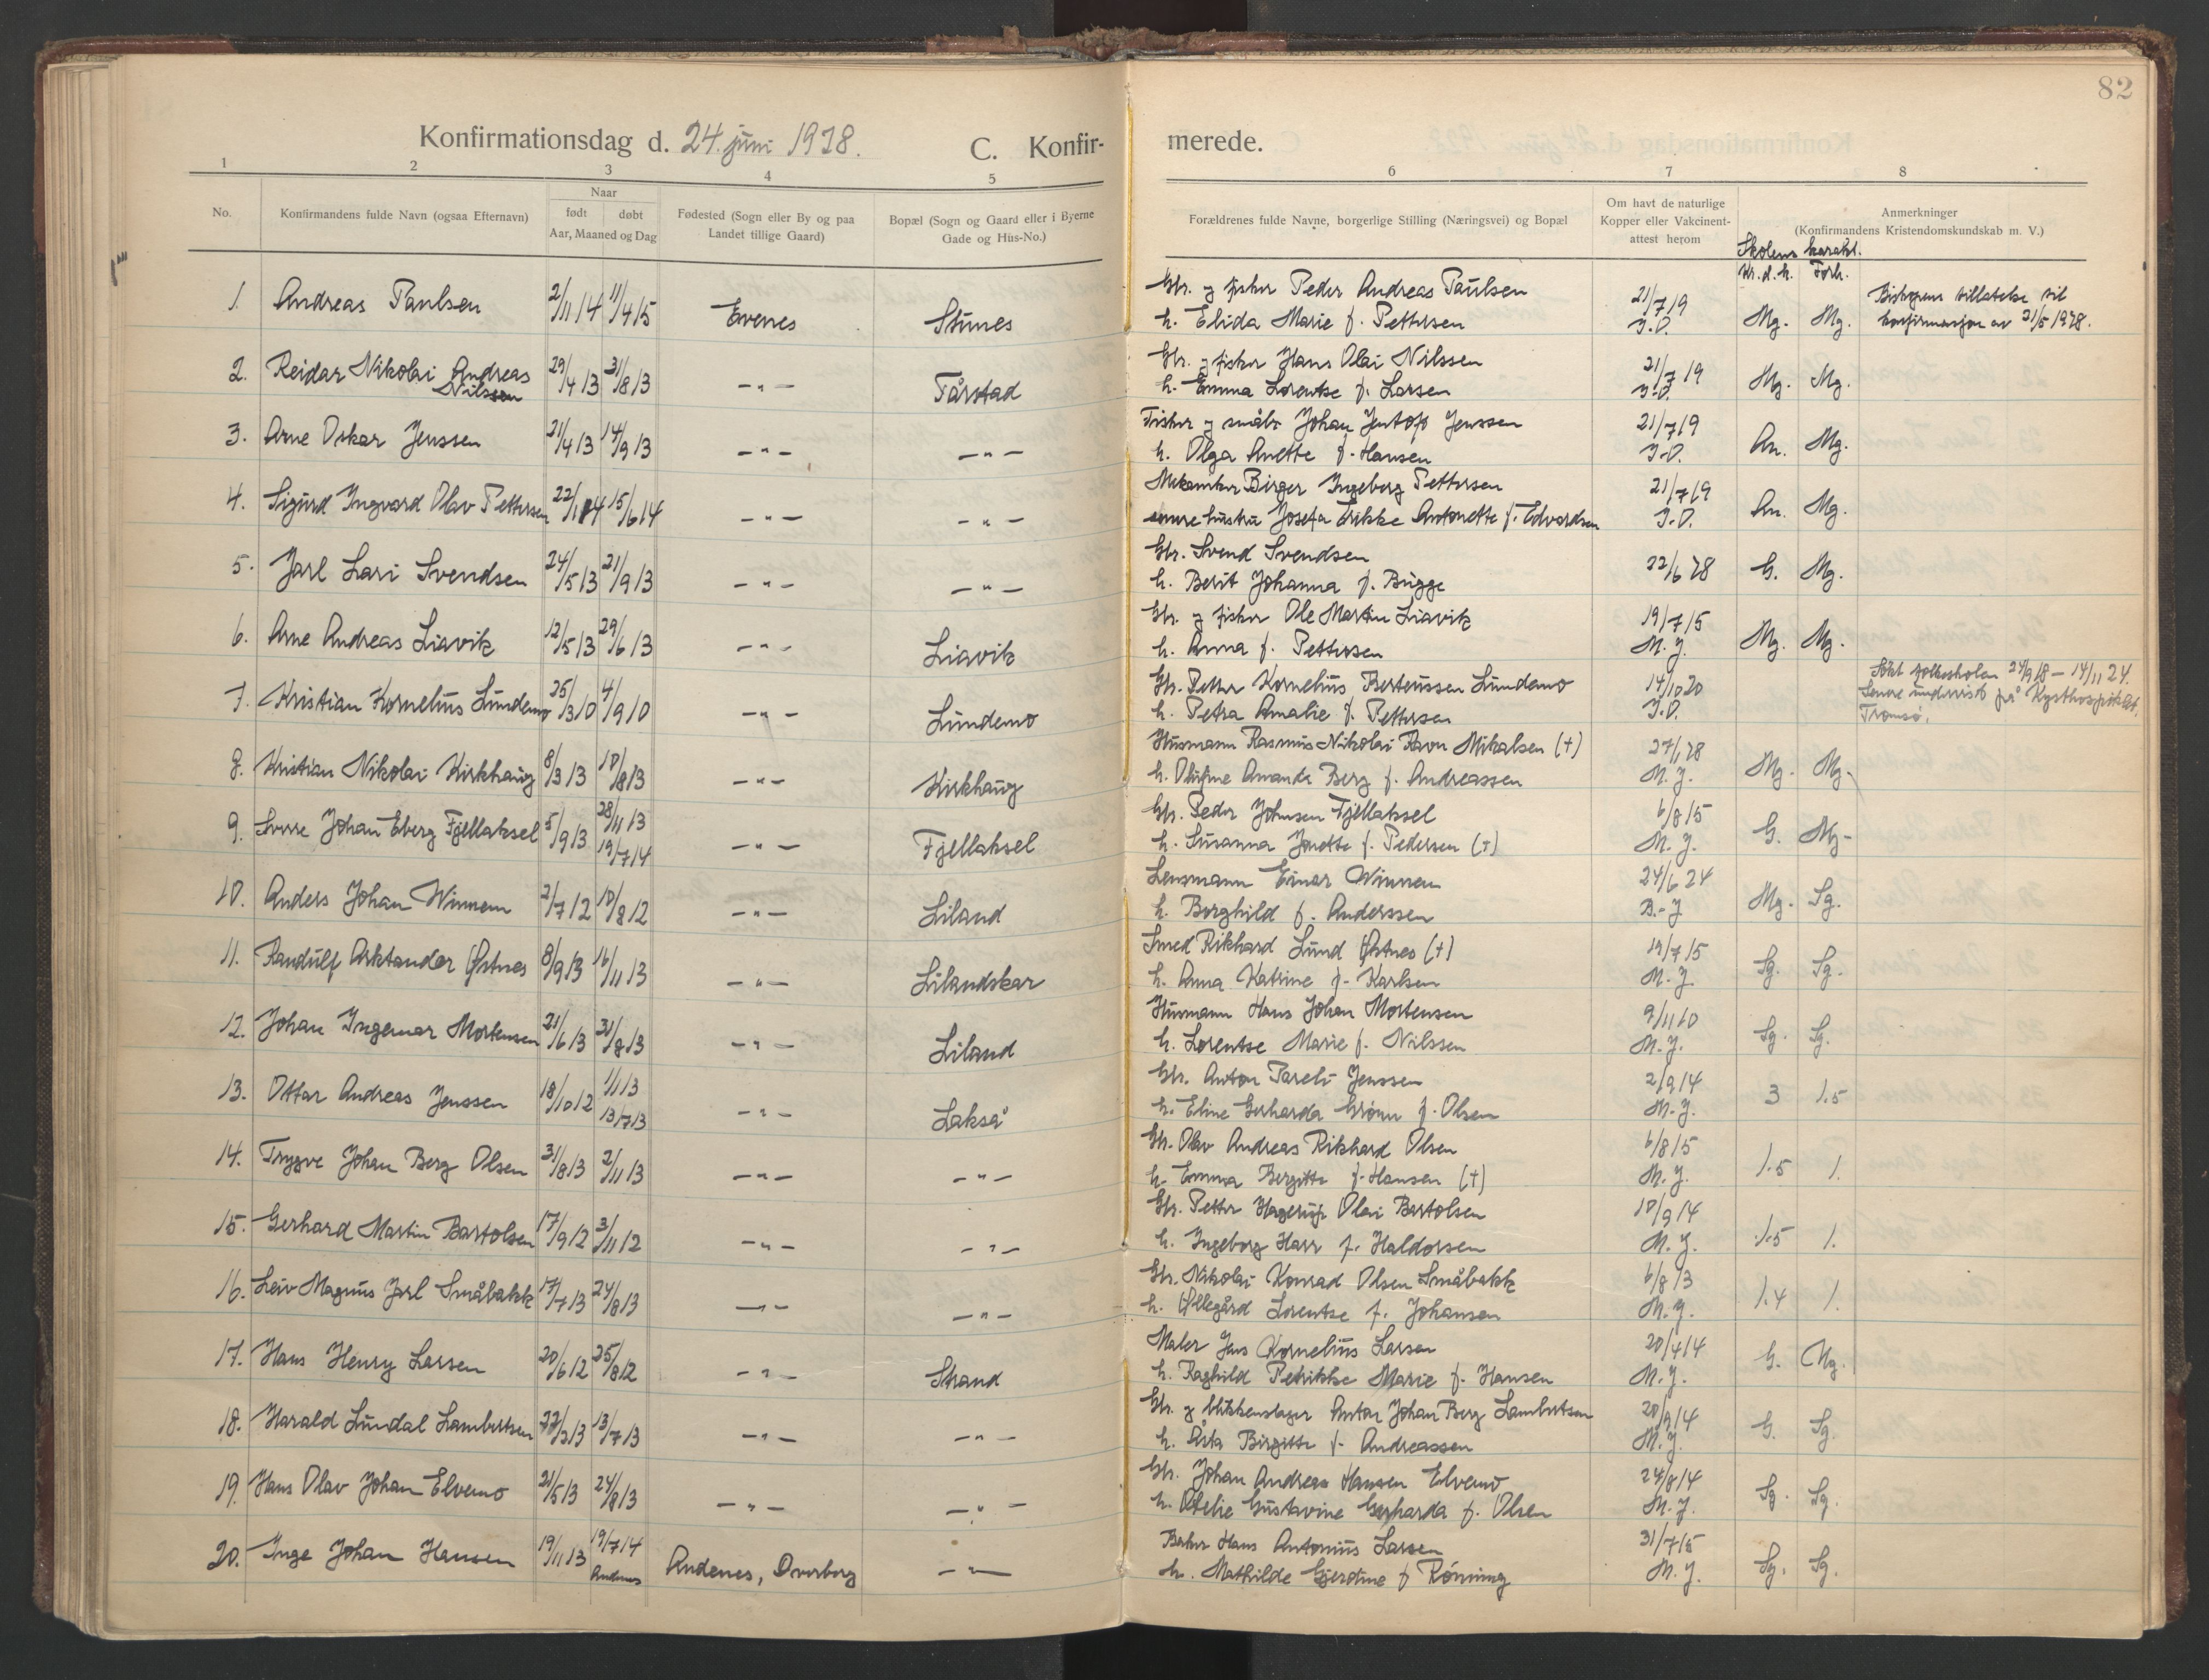 82
Konfirmationsdag d. 24. juni 1928. C. Konfir-
merede.
1 2 3 4 5 6 7 8
No.
Konfirmandens fulde Navn (ogsaa Efternavn)
Naar
født døbt
Aar, Maaned og Dag
Fødested (Sogn eller By og paa
Landet tillige Gaard)
Bopæl (Sogn og Gaard eller i Byerne
Gade og Hus-No.)
Forældrenes fulde Navne, borgerlige Stilling (Næringsvei) og Bopæl
Om havt de naturlige
Kopper eller Vakcinent-
attest herom
Anmerkninger
(Konfirmandens Kristendomskundskab m. V.)
Skolens karakt.
Kr.d.k. Forh.
1. Andreas Paulsen 2/11 14 11/4 15 Evenes Stunes
Gbr. og fisker Peder Andreas Paulsen
h. Elida Marie f. Pettersen
21/7 19
J.D. Mg. Mg.
Biskopens tillatelse til
konfirmasjon av 21/5 1928.
2. Reidar Nikolai Andreas
Nilssen
29/4 13 31/8 13 -"- Tårstad
Gbr. og fisker Hans Olai Nilssen
h. Emma Lorentse f. Larsen
21/7 19
J.D. Mg. Mg.
3. Arne Oskar Jenssen 21/4 13 14/9 13 -"- -"-
Fisker og småbr. Johan Jentoft Jenssen
h. Olga Anette f. Hansen
21/7 19
J.D. An. Mg.
4. Sigurd Ingvard Olav Pettersen 22/1 14 15/6 14 -"- -"-
Mekaniker Birger Ingeberg Pettersen
senere hustru Josefa Frikke Antonette f. Edvardsen
21/7 19
J.D. An. Mg.
5. Jarl Lari Svendsen 24/5 13 21/9 13 -"- -"-
Gbr. Svend Svendsen
h. Berit Johanna f. Bugge
22/6 28 G. Mg.
6. Arne Andreas Liavik 12/5 13 29/6 13 -"- Liavik
Gbr. og fisker Ole Martin Liavik
h. Anna f. Pettersen
19/7 15
M.J. Mg. Mg.
7. Kristian Kornelius Lundemo 25/3 10 4/9 10 -"- Lundemo
Gbr. Petter Kornelius Berteussen Lundemo
h. Petra Amalie f. Pettersen
14/10 20
J.D.
Søkt folkeskolen 24/9 18 - 14/11 24.
Senere undervist på Kysthospitalet,
Tromsø.
8. Kristian Nikolai Kirkhaug 8/3 13 10/8 13 -"- Kirkhaug
Husmann Rasmus Nikolai Ravn Mikalsen (+)
h. Olufine Amanda Berg f. Andreassen
27/1 28
M.J. Mg. Mg.
9. Sverre Johan Eberg Fjellaksel 5/9 13 28/11 13
19/7 14
-"- Fjellaksel
Gbr. Peder Johnsen Fjellaksel
h. Susanna Jonette f. Pedersen (+)
6/8 15
M.J. G. Mg.
10. Anders Johan Winnem 2/7 12 10/8 12 -"- Liland
Lensmann Einar Winnem
h. Borghild f. Anderssen
24/6 24
B.J. Mg. Sg.
11. Randulf Arktander Østnes 8/9 13 16/11 13 -"- Lilandskar
Smed Rikhard Lund Østnes (+)
h. Anna Katrine f. Karlsen
19/7 15
M.J. Sg. Sg.
12. Johan Ingemar Mortensen 21/6 13 31/8 13 -"- Liland
Husmann Hans Johan Mortensen
h. Lorentse Marie f. Nilssen
9/11 10
M.J. Sg. Sg.
13. Ottar Andreas Jenssen 18/10 12 1/1 13
13/7 13
-"- Lakså
Gbr. Anton Pareli Jenssen
h. Eline Gerharda Grönn f. Olsen
2/9 14
M.J. 3 1.5
14. Trygve Johan Berg Olsen 31/8 13 2/11 13 -"- -"-
Gbr. Olav Andreas Rikhard Olsen
h. Emma Bergitte f. Hansen (+)
6/8 15
M.J. 1.5 1.
15. Gerhard Martin Bartolsen 17/9 12 3/11 12 -"- -"-
Gbr. Petter Hagerup Olai Bartolsen
h. Ingeborg Harr f. Haldorsen
10/9 14
M.J. 1.5 1.
16. Leiv Magnus Jarl Småbakk 17/7 13 24/8 13 -"- -"-
Gbr. Nikolai Konrad Olsen Småbakk
h. Øllegård Lorentse f. Johansen
6/8 13
M.J. 1.4 1.
17. Hans Henry Larsen 20/6 12 25/8 12 -"- Strand
Maler Jens Kornelius Larsen
h. Raghild Petrikke Marie f. Hansen
20/4 14
M.J. G. Mg.
18. Harald Lundal Lambertsen 22/2 13 13/7 13 -"- -"-
Gbr. og blikkenslager Anton Johan Berg Lambertsen
h. Åsta Birgitte f. Andreassen
20/9 14
M.J. G. Sg.
19. Hans Olav Johan Elvemo 21/5 13 24/8 13 -"- -"-
Gbr. Johan Andreas Hansen Elvemo
h. Otelie Gustavine Gerharda f. Olsen
24/8 14
M.J. Sg. Sg.
20. Inge Johan Hansen 19/11 13 19/7 14
Andenes
Andenes, Dverberg -"-
Baker Hans Antonius Larsen
h. Mathilde Gjerdine f. Rönning
31/7 15
M.J. Sg. Sg.